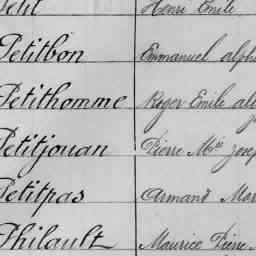 Petit Henri Emile
Petitbon Emmanuel alph
Petithomme Roger Emile
Petitjouan Pierre Mie Jose
Petitpas Armand Mar
Philault Maurice Pierre